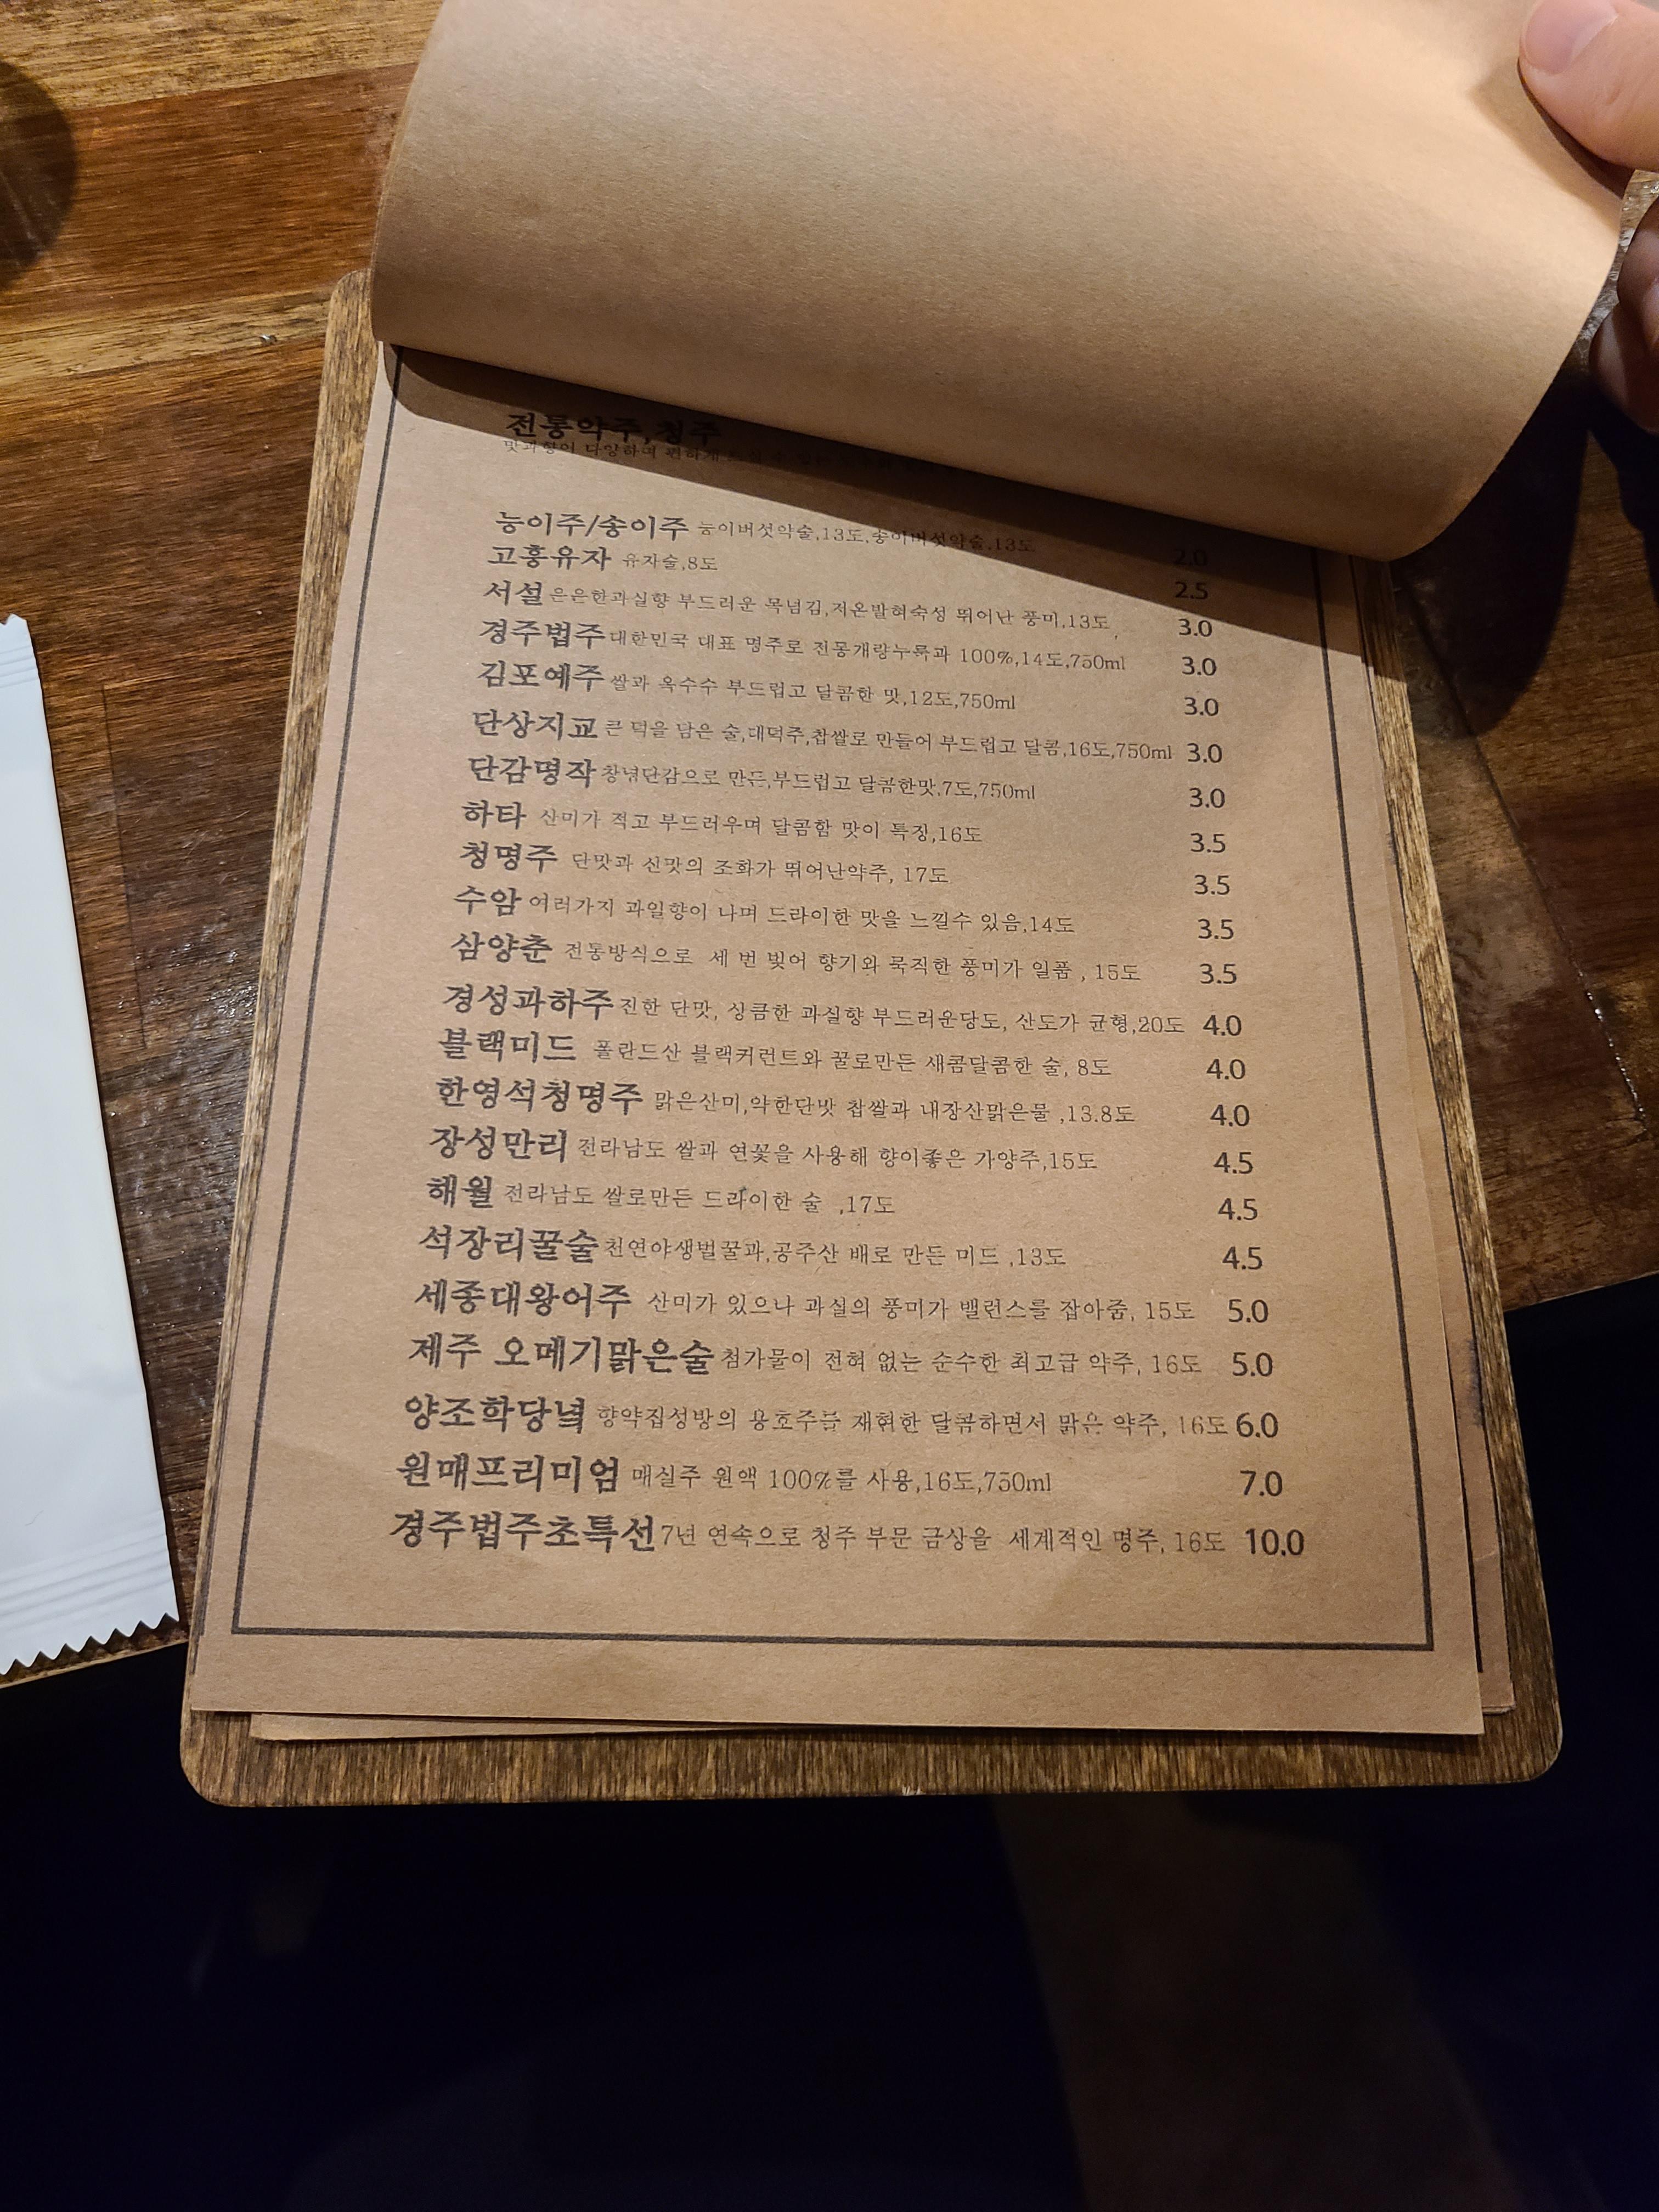 전통약주,청주
맛과향이 다양하며 편하게
능이주/송이주 능이버섯약술,13도,송이버섯약술,13도 2.0
고흥유자 유자술,8도 2.5
서설 은은한과실향 부드러운 목넘김,저온발효숙성 뛰어난 풍미,13도 3.0
경주법주 대한민국 대표 명주로 전통개량누룩과 100%,14도,750ml 3.0
김포예주 쌀과 옥수수 부드럽고 달콤한 맛,12도,750ml 3.0
단상지교 큰 덕을 담은 술,대덕주,찹쌀로 만들어 부드럽고 달콤,16도,750ml 3.0
단감명작 창녕단감으로 만든,부드럽고 달콤한맛,7도,750ml 3.0
하타 산미가 적고 부드러우며 달콤함 맛이 특징,16도 3.5
청명주 단맛과 신맛의 조화가 뛰어난약주, 17도 3.5
수암 여러가지 과일향이 나며 드라이한 맛을 느낄수 있음,14도 3.5
삼양춘 전통방식으로 세 번 빚어 향기와 묵직한 풍미가 일품 , 15도 3.5
경성과하주 진한 단맛, 상큼한 과실향 부드러운당도, 산도가 균형,20도 4.0
블랙미드 폴란드산 블랙커런트와 꿀로만든 새콤달콤한 술, 8도 4.0
한영석청명주 맑은산미,약한단맛 찹쌀과 내장산맑은물 ,13.8도 4.0
장성만리 전라남도 쌀과 연꽃을 사용해 향이좋은 가양주,15도 4.5
해월 전라남도 쌀로만든 드라이한 술 ,17도 4.5
석장리꿀술 천연야생벌꿀과,공주산 배로 만든 미드 ,13도 4.5
세종대왕어주 산미가 있으나 과실의 풍미가 밸런스를 잡아줌, 15도 5.0
제주 오메기맑은술 첨가물이 전혀 없는 순수한 최고급 약주, 16도 5.0
양조학당녘 향약집성방의 용호주를 재현한 달콤하면서 맑은 약주, 16도 6.0
원매프리미엄 매실주 원액 100%를 사용,16도,750ml 7.0
경주법주초특선 7년 연속으로 청주 부문 금상을 세계적인 명주, 16도 10.0